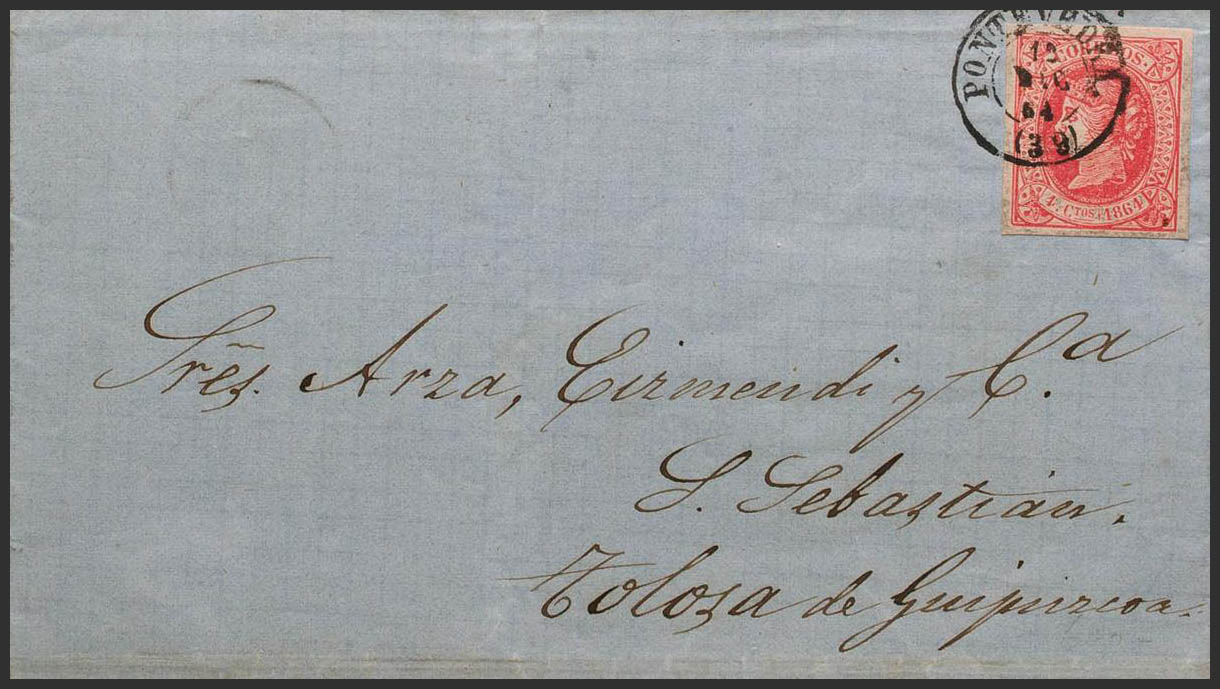 PONTEVEDRA
12
DIC
64
(38)
CORREOS.
4 CTOS. 1864
Srẽs. Arza, Eizmendi y C.ª
S. Sebastián.
Tolosa de Guipuzcoa.